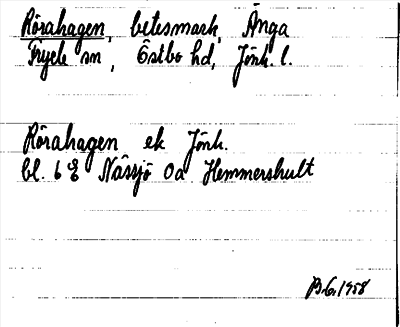 Rörahagen, betesmark, Änga
Fryele sn, Östbo hd, Jönk. l.
Rörahagen ek Jönk.
bl. 6 E Nässjö 0a Hemmershult
B.G. 1958